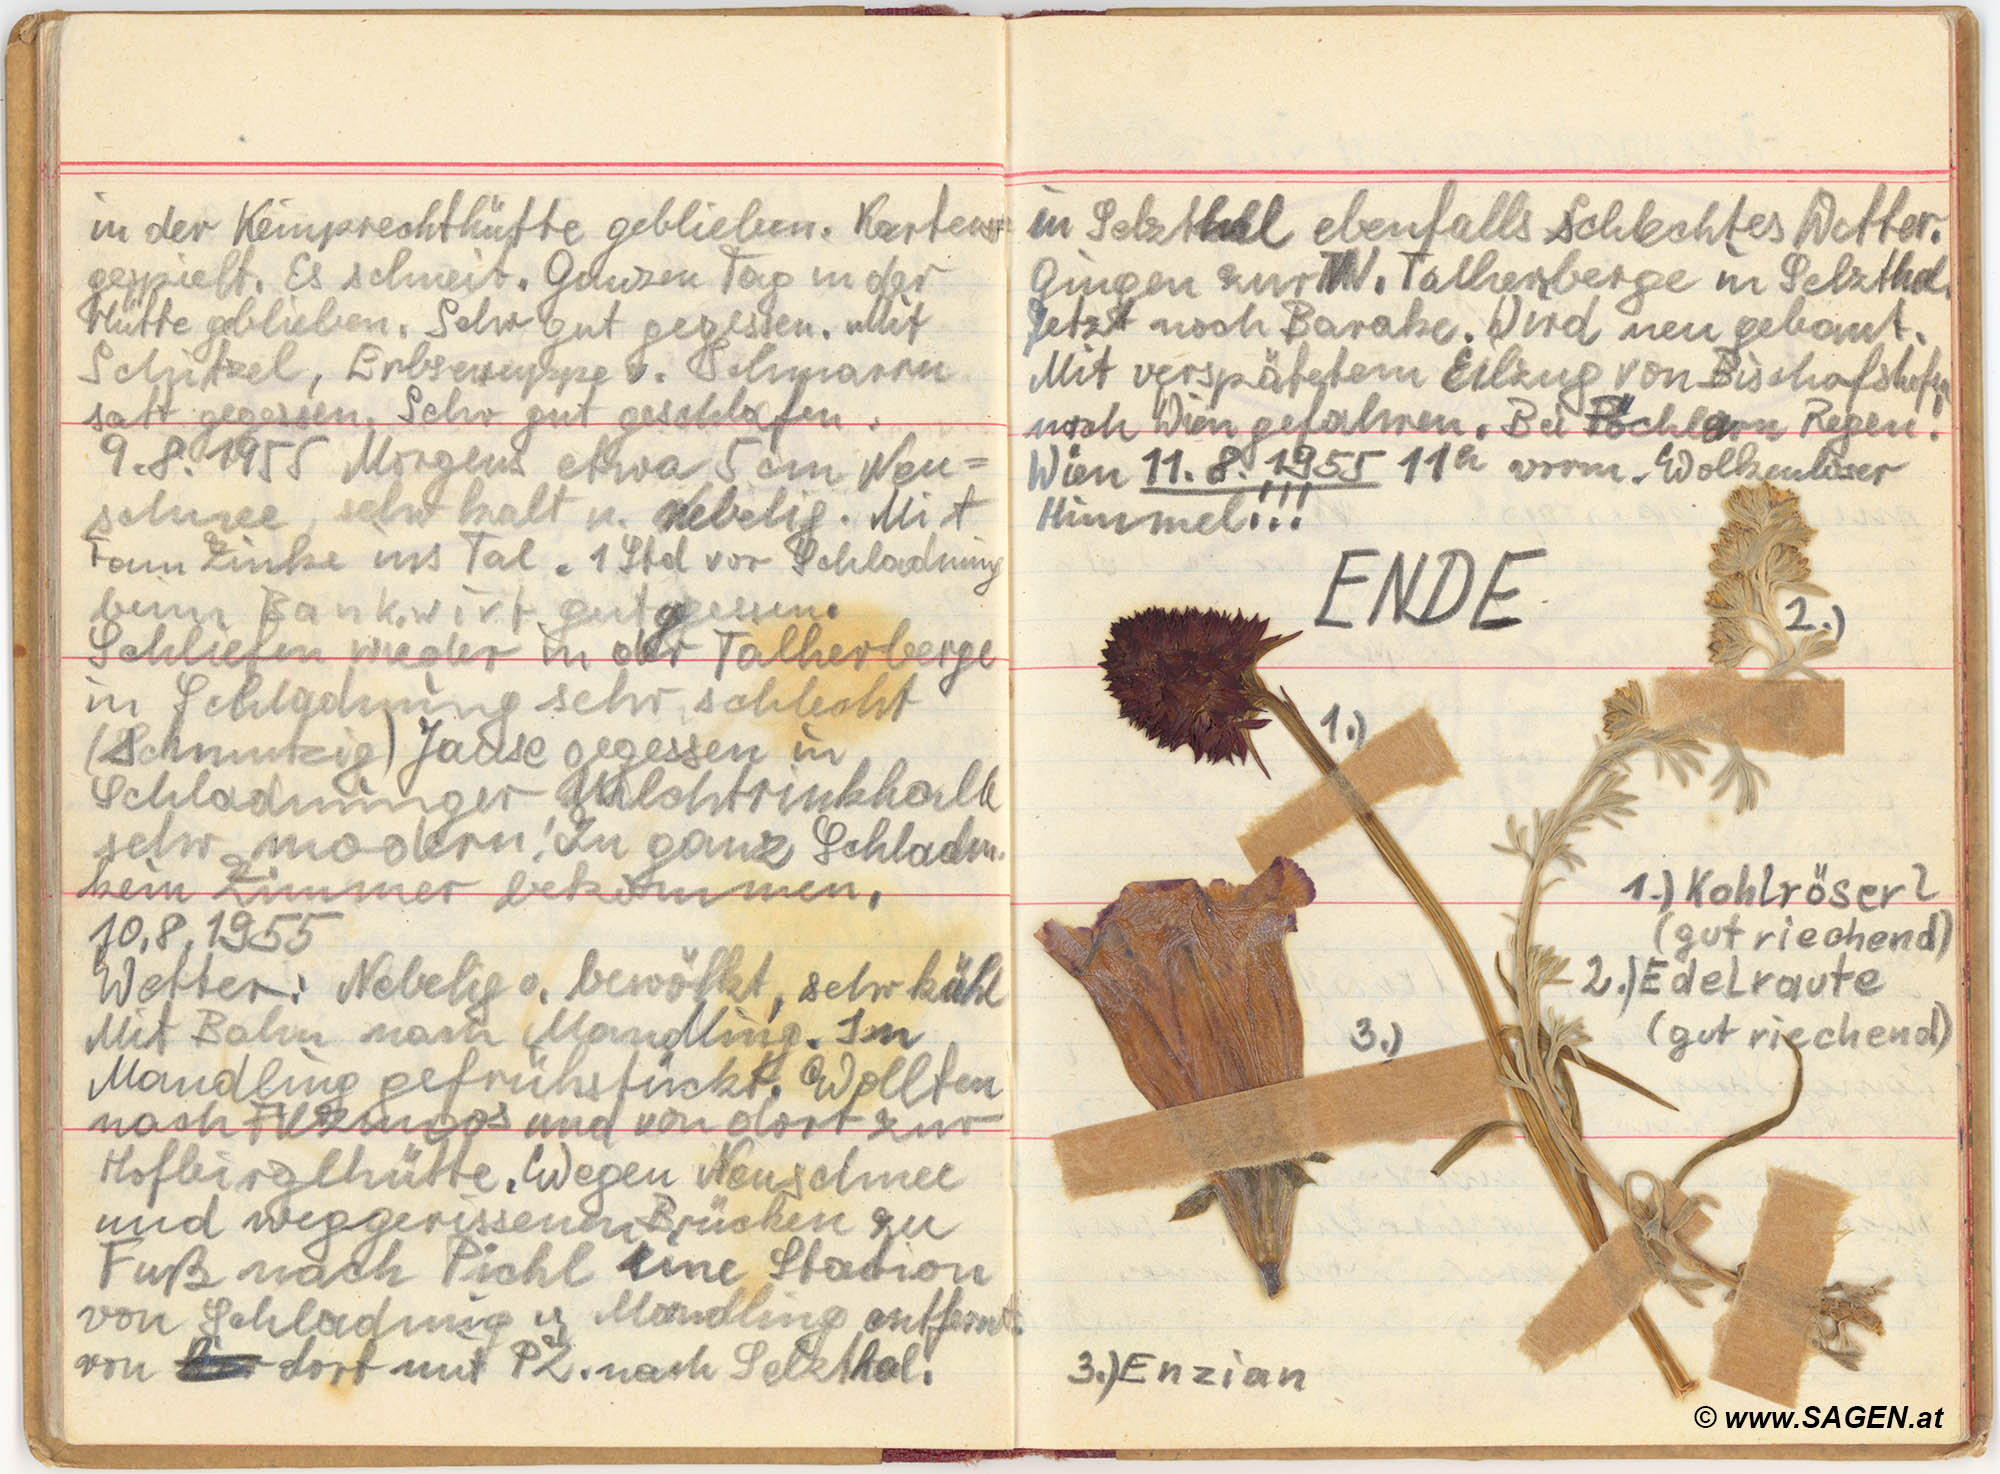 in der Keinprechthütte geblieben. Karten=
gespielt. Es schneit. Ganzen Tag in der
Hütte geblieben. Sehr gut gegessen. Mit
Schitzel, Erbsensuppe u. Schmarrn
satt gegessen. Sehr gut geschlafen.
9.8.1955 Morgens etwa 5 cm Neu=
schnee, sehr kalt u. Nebelig. Mit
Fam Zinke ins Tal. 1 Std vor Schladming
beim Bankwirt gut gegessen.
Schliefen wieder in der Talherberge
in Schladming sehr schlecht
(Schmutzig) Jause gegessen in
Schladminger Milchtrinkhalle
sehr modern! In ganz Schladm.
kein Zimmer bekommen.
10.8.1955
Wetter: Nebelig u. bewölkt, sehr kühl
Mit Bahn nach Mandling. In
Mandling gefrühstückt. Wollten
nach Filzmoos und von dort zur
Hofbirglhütte. Wegen Neuschnee
und weggerissenen Brücken zu
Fuß nach Pichl eine Station
von Schladmig u. Mandling entfernt.
von dort mit PZ. nach Selzthal.
in Selzthal ebenfalls schlechtes Wetter.
Gingen zur TVN. Talherberge in Selzthal.
Jetzt noch Barake. Wird neu gebaut.
Mit verspätetem Eilzug von Bischofshofen
nach Wien gefahren. Bei Pöchlarn Regen!
Wien 11.8.1955 11h vorm. Wolkenloser
Himmel!!!
ENDE.
2.)
1.)
1.) Kohlröserl
(gut riechend)
2.) Edelraute
(gut riechend)
3.)
3.) Enzian
© www.SAGEN.at